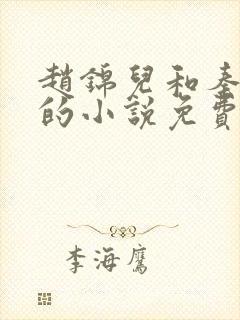 趙錦兒和秦
的小說免費
李海鷹